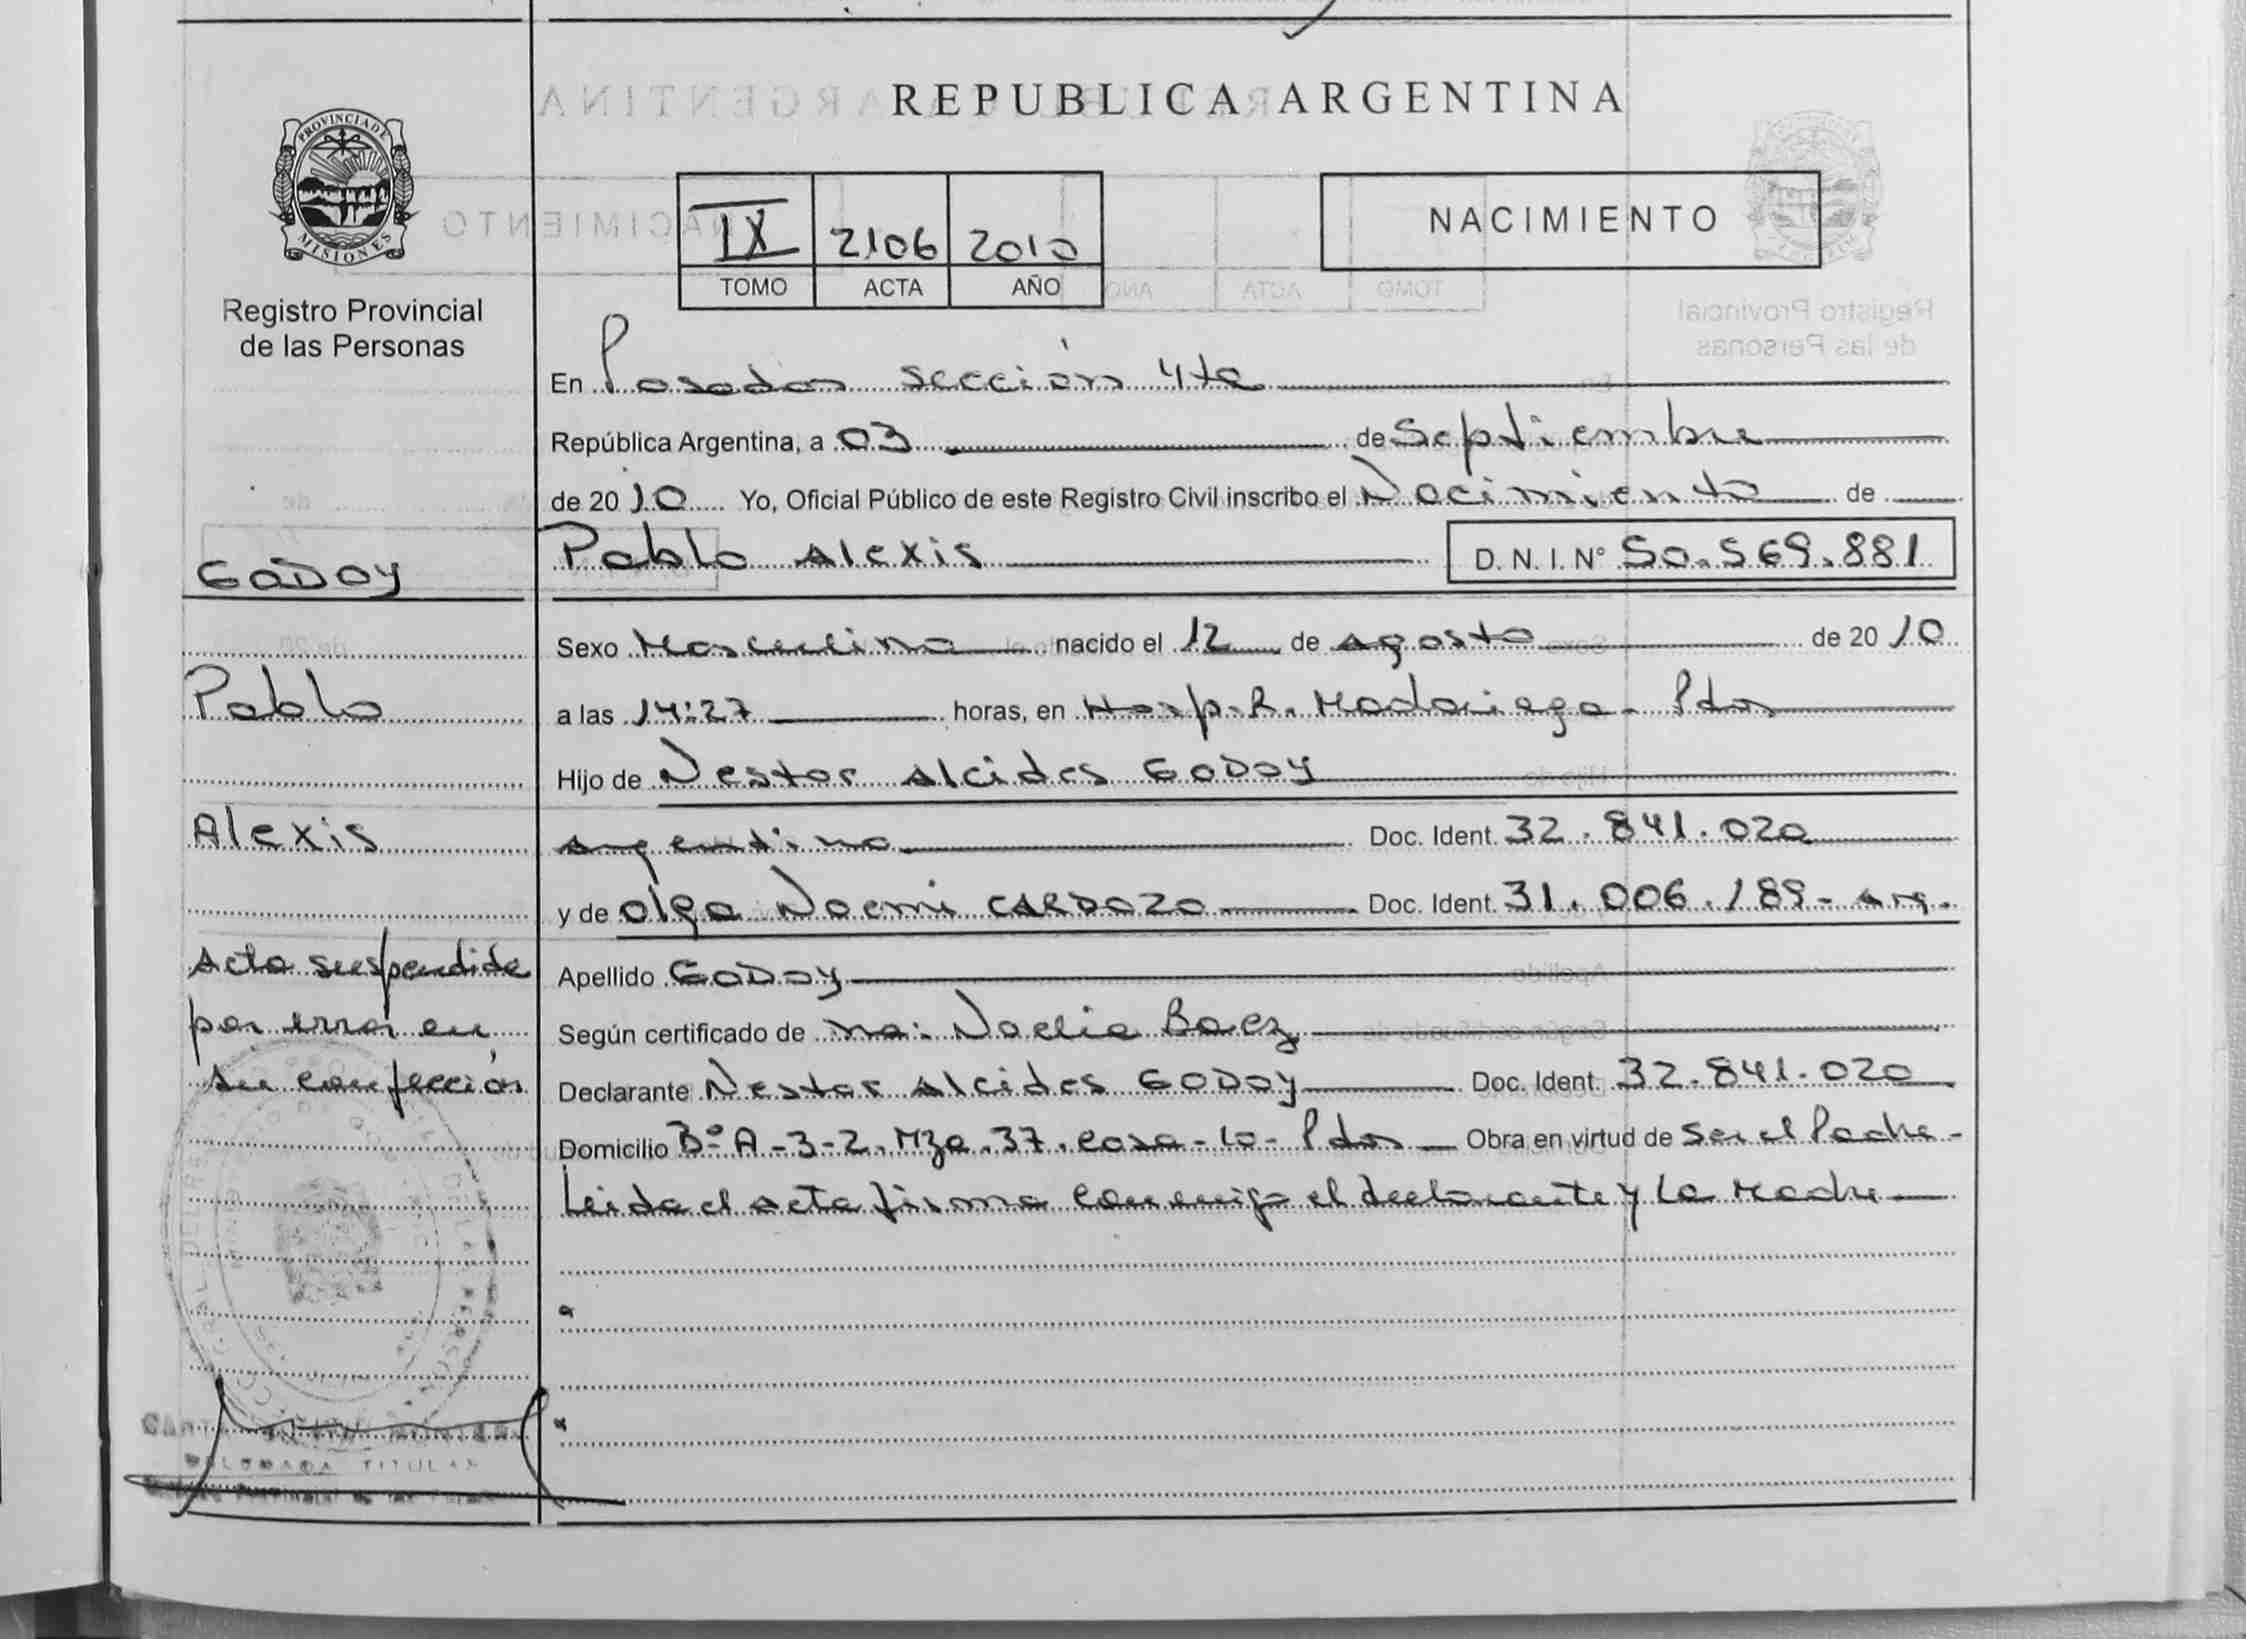 REPUBLICA ARGENTINA
PROVINCIA DE MISIONES
Registro Provincial
de las Personas
IX 2106 2010
TOMO ACTA AÑO
NACIMIENTO
En Posadas sección 4ta
República Argentina, a 03 de Septiembre
de 2010 Yo, Oficial Público de este Registro Civil inscribo el Nacimiento de
GODOY
Pablo Alexis D. N. I. N° 50.569.881
Sexo Masculino nacido el 12 de agosto de 2010
Pablo
a las 14:27 horas, en Hosp. R. Madariaga - Pdas
Hijo de Nestor Alcides GODOY
Alexis
argentino Doc. Ident. 32.841.020
y de Olga Noemi CARDOZO Doc. Ident. 31.006.189 - arg.
Acta suspendida
por error en
su confección
Apellido GODOY
Según certificado de Noelia Baez
Declarante Nestor Alcides GODOY Doc. Ident. 32.841.020
Domicilio B° A-3-2. Mza. 37. casa - 10 - Pdas Obra en virtud de ser el Padre -
Leida el acta firma conmigo el declarante y la Madre
TITULAR